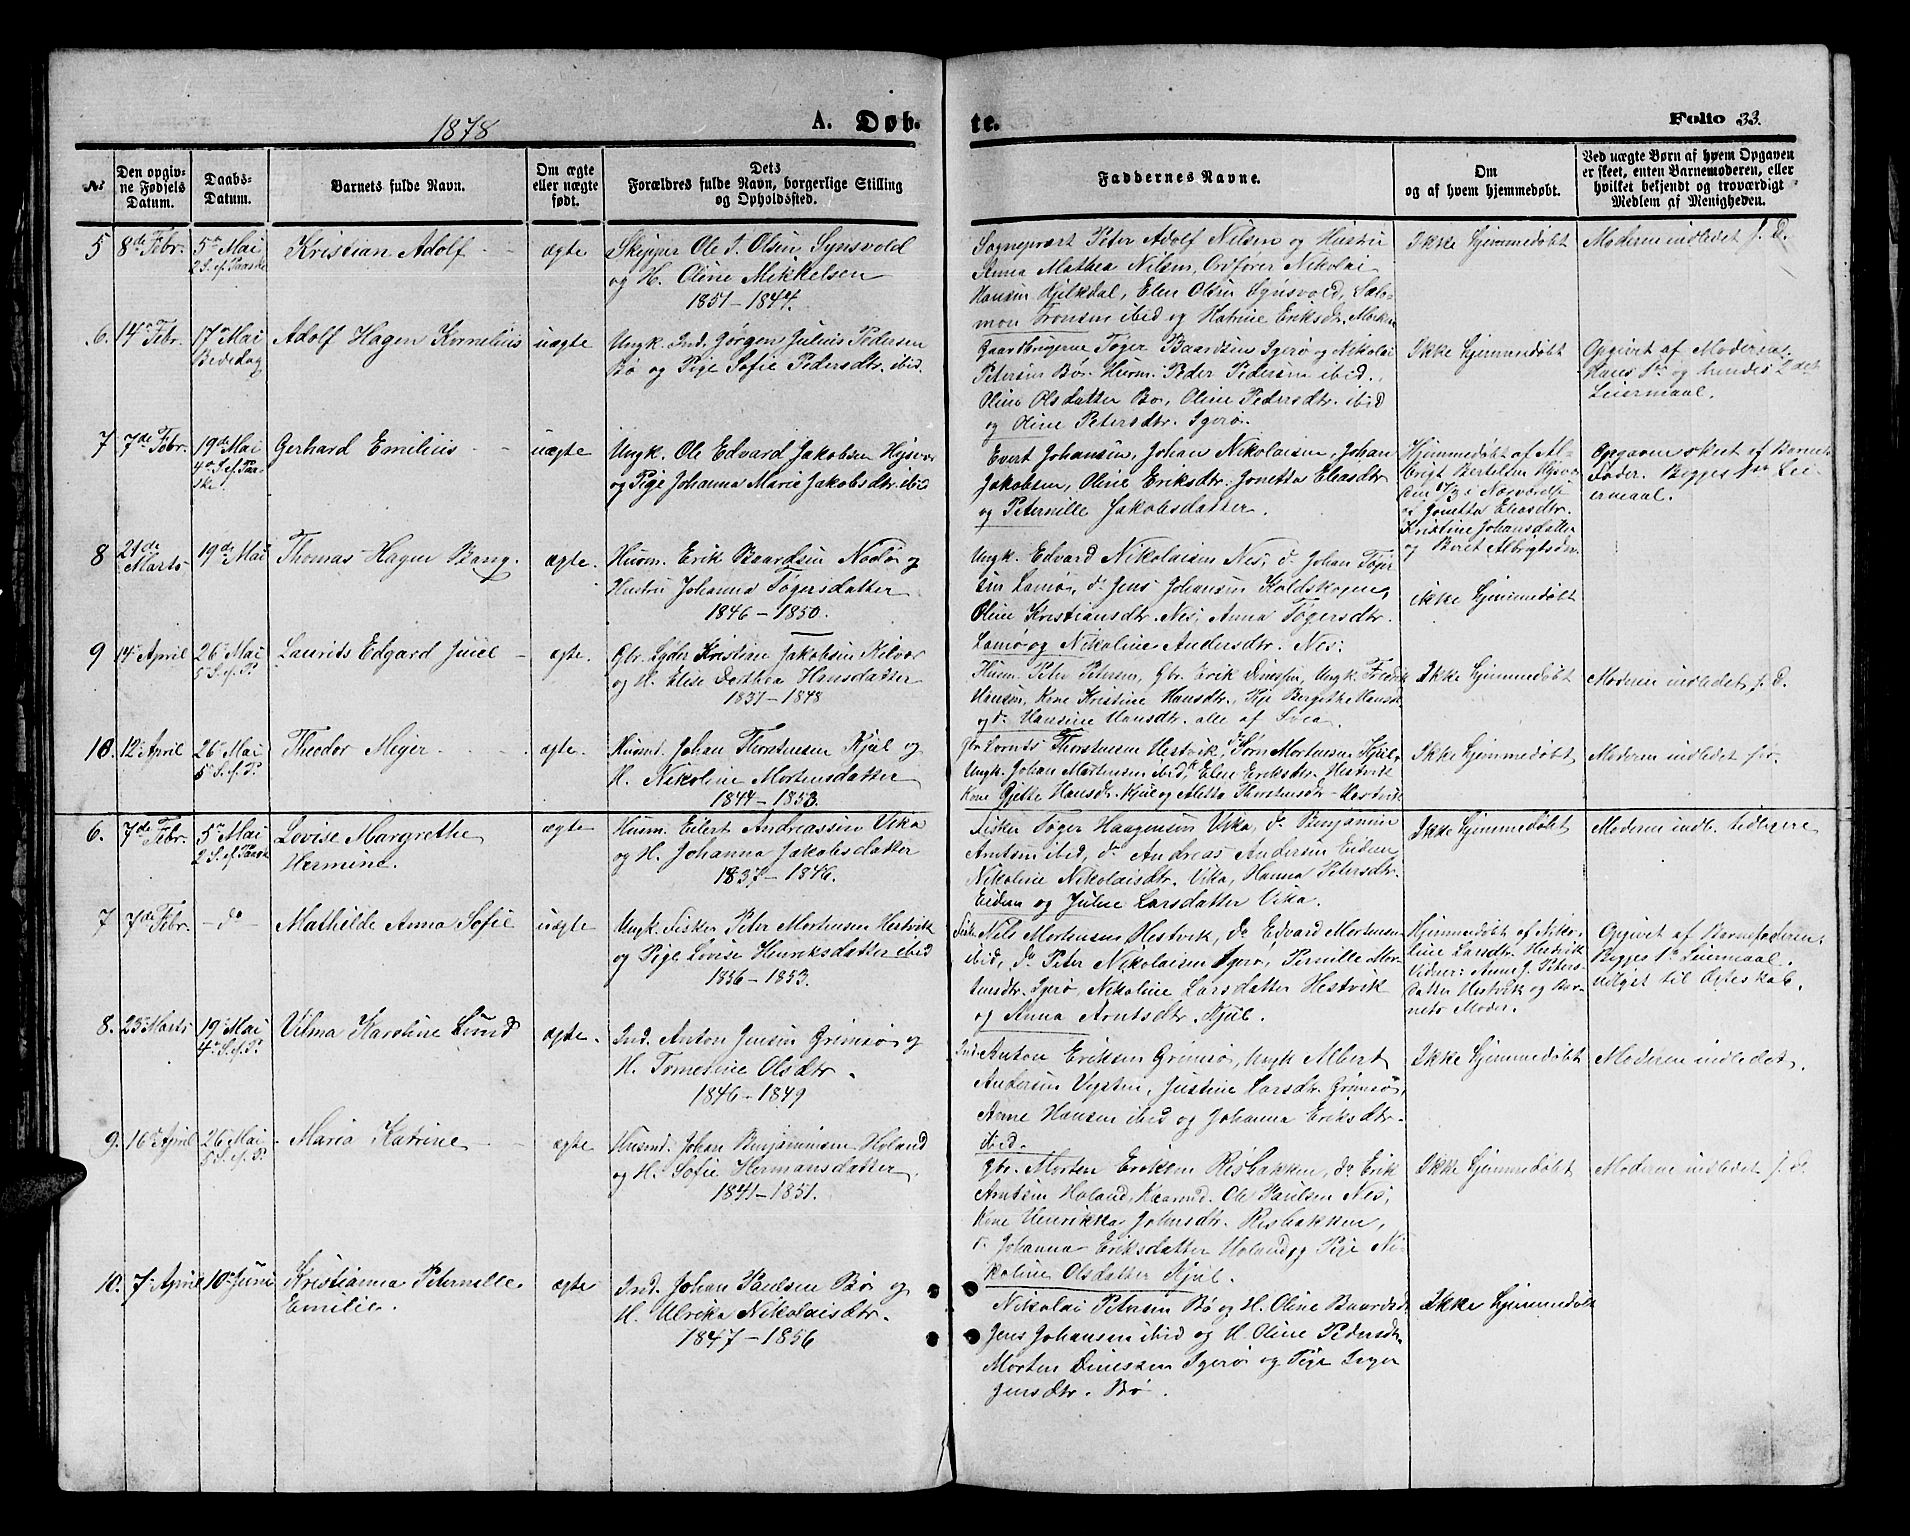 1878
A. Døb-
te.
Folio 33.
№
Den opgiv-
ne Fødsels
Datum.
Daabs-
Datum.
Barnets fulde Navn.
Om ægte
eller uægte
født.
Dets
Forældres fulde Navn, borgerlige Stilling
og Opholdssted.
Faddernes Navne.
Om
og af hvem hjemmedøbt.
Ved uægte Børn af hvem Opgaven
er skeet, enten Barnemoderen, eller
hvilket beljendt og troværdigt
Medlem af Menigheden.
5
8de Febr.
5te Mai
2 S. ef. Paaske
Kristian Adolf
ægte
Skipper Ole J. Olsen Synsvold
og H. Oline Mikkelsen
1851 – 1844.
Sognepræst Peter Adolf Nilsen og Hustru
Anna Mathea Nilsen, Ordfører Nikolai
Hansen Kjelkdal, Elen Olsen Synsvold, Salo-
mon Tronsen ibid og Katrine Eriksdtr.
Ikke hjemmedøbt
Moderen indledet s. D.
6.
14de Febr.
17de Mai
Bededag
Adolf Hagen Kornelius
uægte
Ungk. Ind. Jørgen Julius Pedersen
Bø og Pige Sofie Pedersdtr. ibid.
Gaardbrugerne Tøger Baardsen Igerø og Nikolai
Petersen Bø, Husm. Peder Pedersen ibid.,
Oline Olsdatter Bø, Oline Pedersdtr. ibid
og Oline Petersdtr. Igerø.
Ikke hjemmedøbt
Opgivet af Moderen at
Hans 1ste og hendes 2det
Leiermaal.
7
7de Febr.
19de Mai
4de S. ef. Paa-
ske.
Gerhard Emilius
uægte
Ungk. Ole Edvard Jakobsen Hysvær
og Pige Johanna Marie Jakobsdtr. ibid
Evert Johansen, Johan Nikolaisen, Johan
Jakobsen, Oline Eriksdtr. Jonetta Eliasdtr
og Peternille Jakobsdatter.
Hjemmedøbt af Al-
brigt Bertelsen Hysvær
den 17/3 i Nærværelse
af Jonetta Eliasdtr.
Kristine Johansdatter
og Beret Albrigtsdtr.
Opgaven skeet af Barnets
Fader. Begges 1ste Lei-
ermaal.
8
21de
Marts
19de Mai
Thomas Hagen Bang.
ægte.
Husm. Erik Baardsen Nodø og
Hustru Johanna Tøgersdatter
1846 – 1850.
Ungk. Edvard Nikolaisen Nes, do Johan Tøger-
sen Lamø, do Jens Johansen Koldskogen,
Oline Kristiansdtr. Nes, Anna Tøgersdtr.
Lamø og Nikoline Andersdtr. Nes.
ikke hjemmedøbt
9
14de April
26de Mai
5 S. ef. P.
Laurits Edgard Juel
ægte.
Gbr. Lyder Kristian Jakobsen Kilvær
og H. Elise Dorthea Hansdatter
1851 – 1848
Husm. Peter Petersen, Gbr. Erik Dinesen, Ungk. Fredrik
Hansen, Kone Kristine Hansdtr., Pige Bergithe Hansdt
og do Hansine Hansdtr. alle af Svea.
Ikke hjemmedøbt
Moderen indledet s. D.
10.
12te April
26de Mai
5te S. ef. P.
Theodor Meyer
ægte.
Husmd. Johan Thorstensen Kjul og
H. Nikoline Mortensdatter
1844 – 1853.
Gbr. Lornts Thorstensen Hestvik, Mortensen Kjul,
Ungk. Johan Mortensen ibid, Elen Eriksdtr. Hestvik
Kone Gjette Hansdtr. Kjul og Aletta Thorstensdtr Hestvik
Ikke hjemmedøbt
Moderen indledet
6.
7de Febr.
5te Mai
2 S. ef. Paaske
Lovise Margrethe
Hermine.
ægte
Husm. Eilert Andreassen Vika
og H. Johanna Jakobsdatter
1837 – 1846.
Fisker Tøger Haagensen Vika, do Benjamin
Arntsen ibid, do Andreas Andersen Eidem
Nikoline Nikolaisdtr. Vika, Hanna Petersdtr.
Eidem og Juliu Larsdatter Vika.
Ikke hjemmedøbt
Moderen indl. tidligere
7
7de Febr.
– do –
Mathilde Anna Sofie
uægte
Ungk. Fisker Peter Mortensen Hestvik
og Pige Lovise Henriksdatter ibid
1856 – 1853.
Fisker Nils Mortensen Hestvik, do Edvard Mortensen
ibid, do Peter Nikolaisen Igerø, Pernille Mor-
tensdtr. Igerø, Nikoline Larsdatter Hestvik
og Anna Arntsdtr. Kjul.
Hjemmedøbt af Niko-
line Larsdtr. Hestvik
Vidner: Anne J. Peters-
datter Hestvik og Bar-
nets Moder.
Opgivet af Barnefaderen,
Begges 1ste Leiermaal.
udlyst til Ægteskab.
8.
23de Marts
19de Mai
4de S. ef. P.
Vilma Karoline Lund
ægte.
Ind. Anton Jensen Grimsø og
H. Tomesine Olsdtr.
1846 – 1849
Ind. Anton Eriksen Grimsø, Ungk Albert
Andersen Vegsten, Justine Larsdtr. Grimsø,
Anne Hansen ibid og Johanna Eriksdtr.
ibid.
Ikke hjemmedøbt
Moderen indledet.
9.
16de April
26de Mai
5 S. ef. P.
Maria Katrine
ægte
Husmd. Johan Benjaminsen Holand
og H. Sofie Hermansdatter.
1841 – 1851.
Gbr. Morten Eriksen Resbakken, do Erik
Arntsen Holand, Kaarmd. Ole Paulsen Nes,
Kone Henrikka Johnsdtr. Resbakken,
do Johanna Eriksdatter Holand og Pige Ni-
koline Olsdatter Kjul.
Ikke hjemmedøbt
Moderen indledet s. D.
10.
7de April
10de Juni
Kristianna Peternille
Emilie.
ægte
Ind. Johan Paulsen Bø og
H. Ulrika Nikolaisdtr.
1847 – 1856
Nikolai Petersen Bø og H. Oline Baardsdt
Jens Johansen ibid og H. Oline Pedersdt,
Morten Dinessen Igerø og Pige Inger
Jensdtr. Bø.
Ikke hjemmedøbt